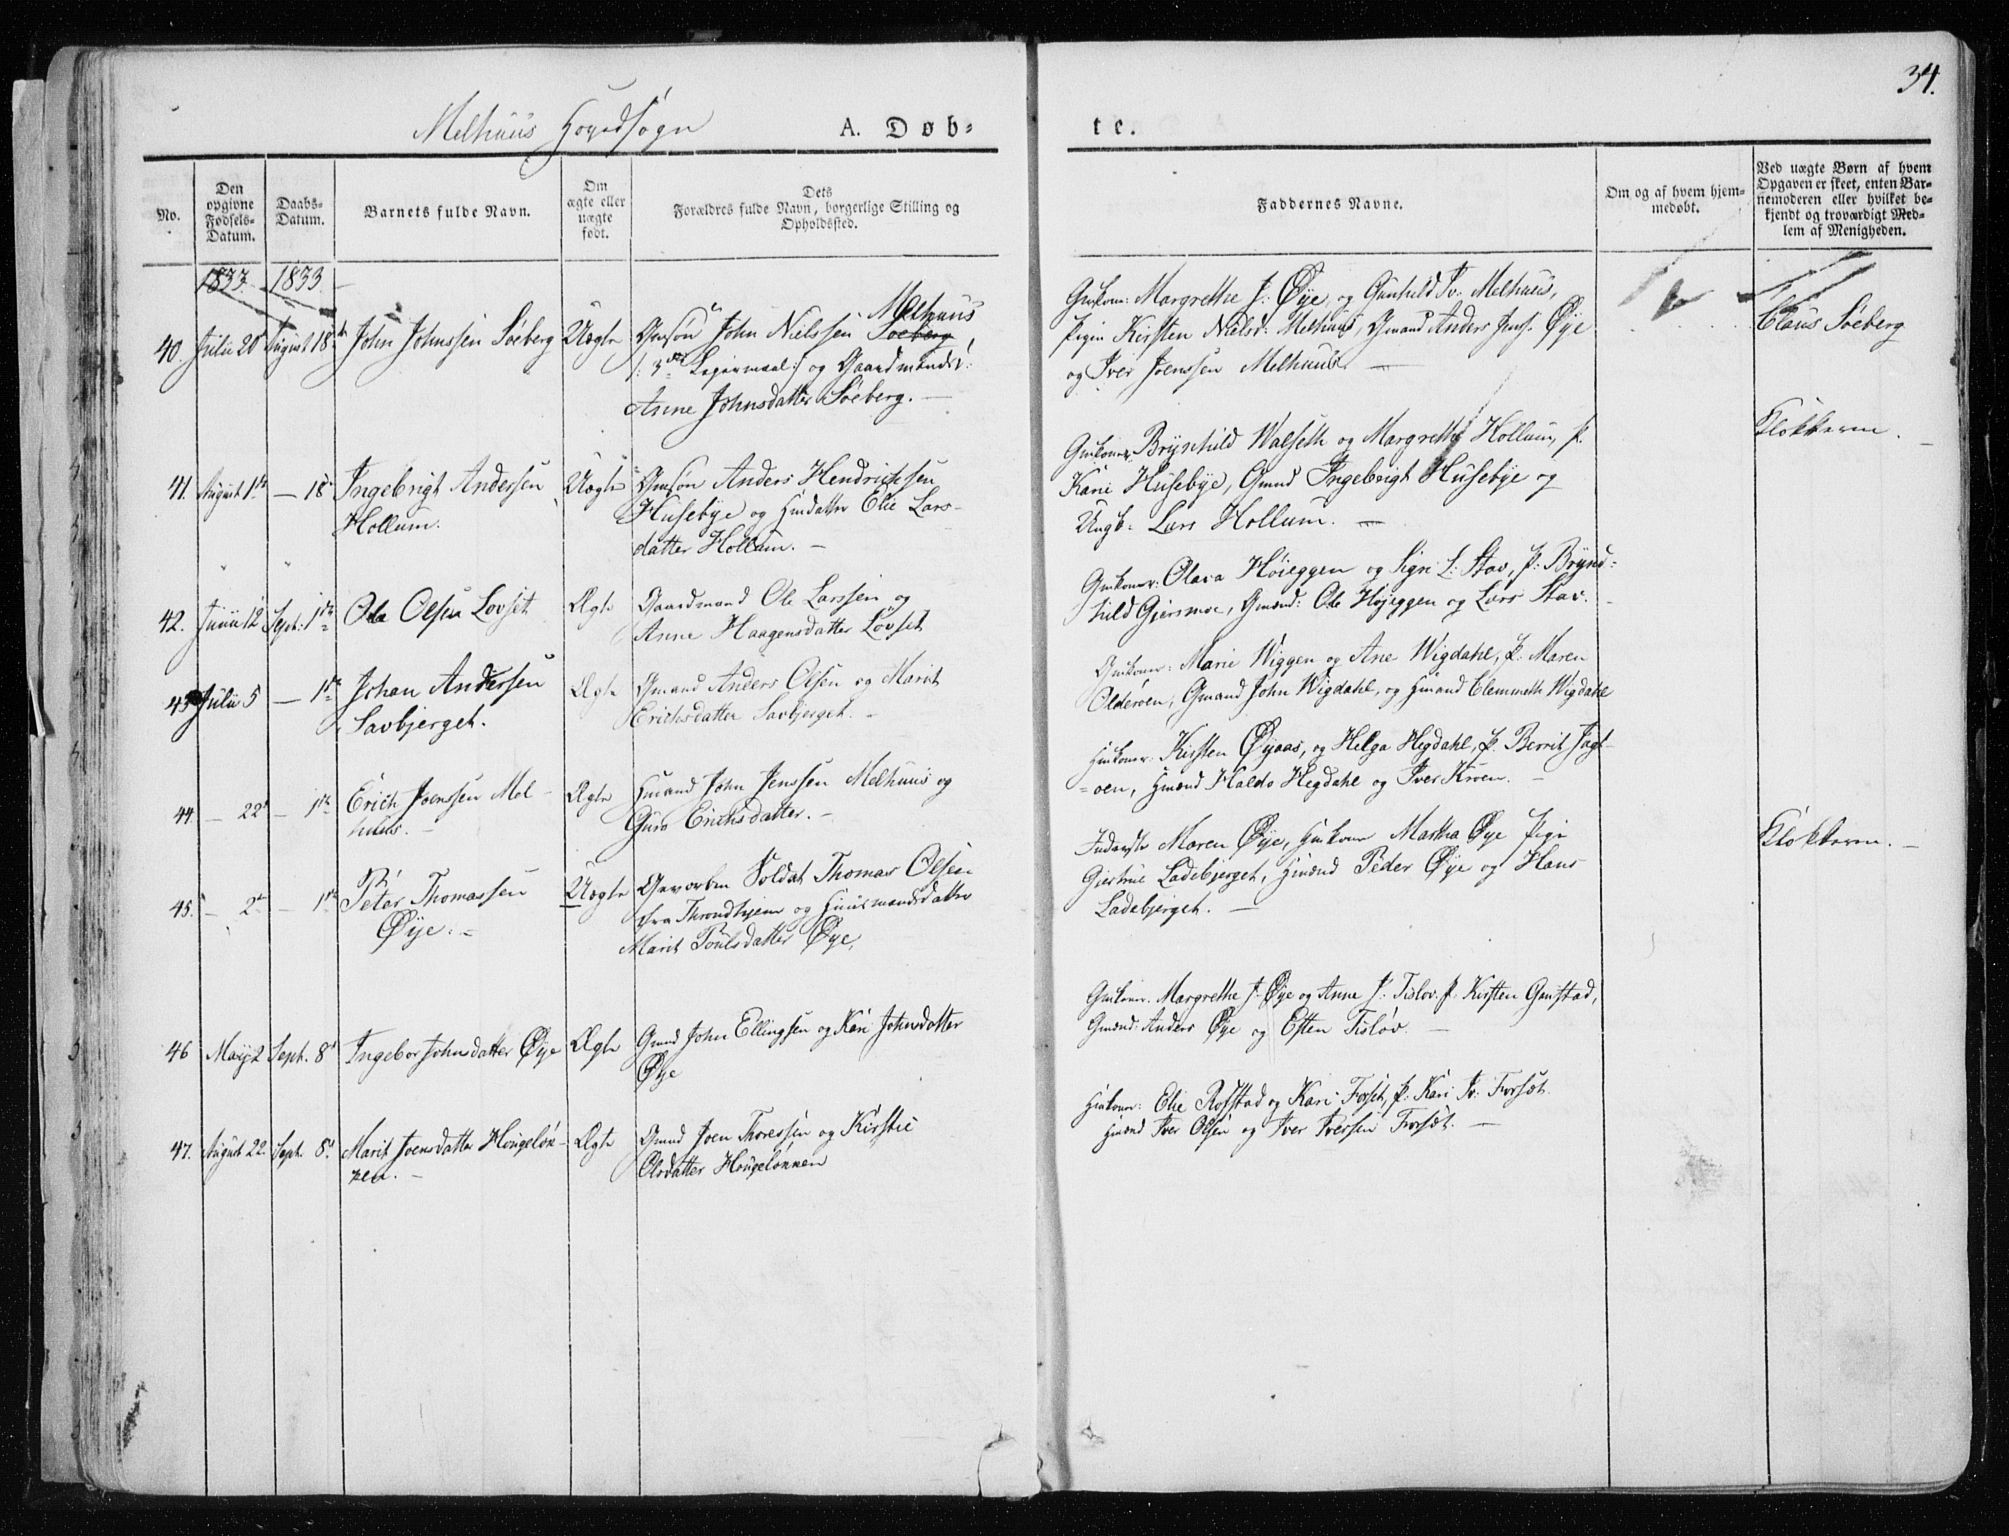 34.
Melhuus Hovedsogn A. Døb- te.
No.
Den opgivne Fødsels-Datum.
Daabs-Datum.
Barnets fulde Navn.
Om ægte eller uægte født.
Dets Forældres fulde Navn, borgerlige Stilling og Opholdssted.
Faddernes Navne.
Om og af hvem hjemmedøbt.
Ved uægte Børn af hvem Opgaven er skeet, enten Barnemoderen eller hvilket bekjendt og troværdigt Medlem af Menigheden.
1833. 1833.
40. Julii 20 August 18 John Johnssen Søeberg Uægte
Gmsøn John Nielssen Søeberg Melhuus
/: 3die Leiermaal :/ og Gaardmandsd:
Anne Johnsdatter Søeberg. —
Gmkoner: Margrethe J: Øÿe, og Gunhild Iv: Melhuus,
Pigen Kirsten Nielsd: Melhuus, Gmand Anders Jens. Øÿe
og Iver Joenssen Melhuus —
Claus Søeberg
41. August 1ste — 18de Ingebrigt Andersen
Hollum.
Uægte
Gmsøn Anders Hendrichsen
Husebye og Hmdatter Elie Lars-
datter Hollum. —
Gmkoner: Brÿnhild Walseth og Margrethe Hollum, P.
Kari Husebÿe, Gmnd Ingebrigt Husebÿe og
Ungk: Lars Hollum. —
Klokkeren. —
42. Junii 12 Sept: 1ste Ole Olsen Lovset
Ægte
Gaardmand Ole Larssen og
Anne Haagensdatter Lovset
Gmkoner: Olava Høieggen og Sigri L: Stav, P: Brÿnd-
hild Gjersmoe, Gmænd: Ole Højeggen og Lars Stav.
43. Julii 5 — 1ste Johan Andersen
Savbjerget.
Ægte
Gmand Anders Olsen og Marit
Erichsdatter Savbjerget. —
Gmkoner: Marie Wiggen og Ane Wigdahl, P: Maren
Olderøen, Gmand John Wigdahl, og Hmand Clemmeth Wigdahl
44. — 22de — 1ste Erich Joenssen Mel-
huus. —
Ægte
Hmand John Jenssen Melhuus og
Guro Erichsdatter. —
Hmkoner: Kirsten Øÿaas, og Helga Hegdahl, P. Berrit Jagt-
øen, Hmænd Haldo Hegdahl og Iver Kroen. —
45. — 2den — 1ste Peter Thomassen
Øÿe. —
Uægte
Gevorben Soldat Thomas Olsen
fra Throndhjem og Huusmandsdatter
Marit Poulsdatter Øÿe.
Inderste Maren Øÿe, Hmkone Martha Øÿe Pige
Gjertrue Ladebjerget, Hmænd Peder Øÿe og Hans
Ladebjerget. —
Klokkeren. —
46 Maÿ 2 Sept. 8de Ingebor Johnsdatter Øÿe Ægte
Gmnd John Ellingsen og Kari Johnsdatter
Øÿe
Gmkoner. Margrethe J. Øÿe og Anne J: Tisløv. P. Kirsten Gaustad,
Gmænd: Anders Øÿe og Esten Tisløv. —
47. August 22. Sept. 8de Marit Joensdatter Hougeløk-
ken. —
Ægte
Gmnd Joen Thoressen og Kirstie
Olsdatter Hougeløkken
Hmkoner: Elie Rofstad og Kari Forset, P: Kari Iv: Forset.
Hmænd Iver Olsen og Iver Iversen Forset. —